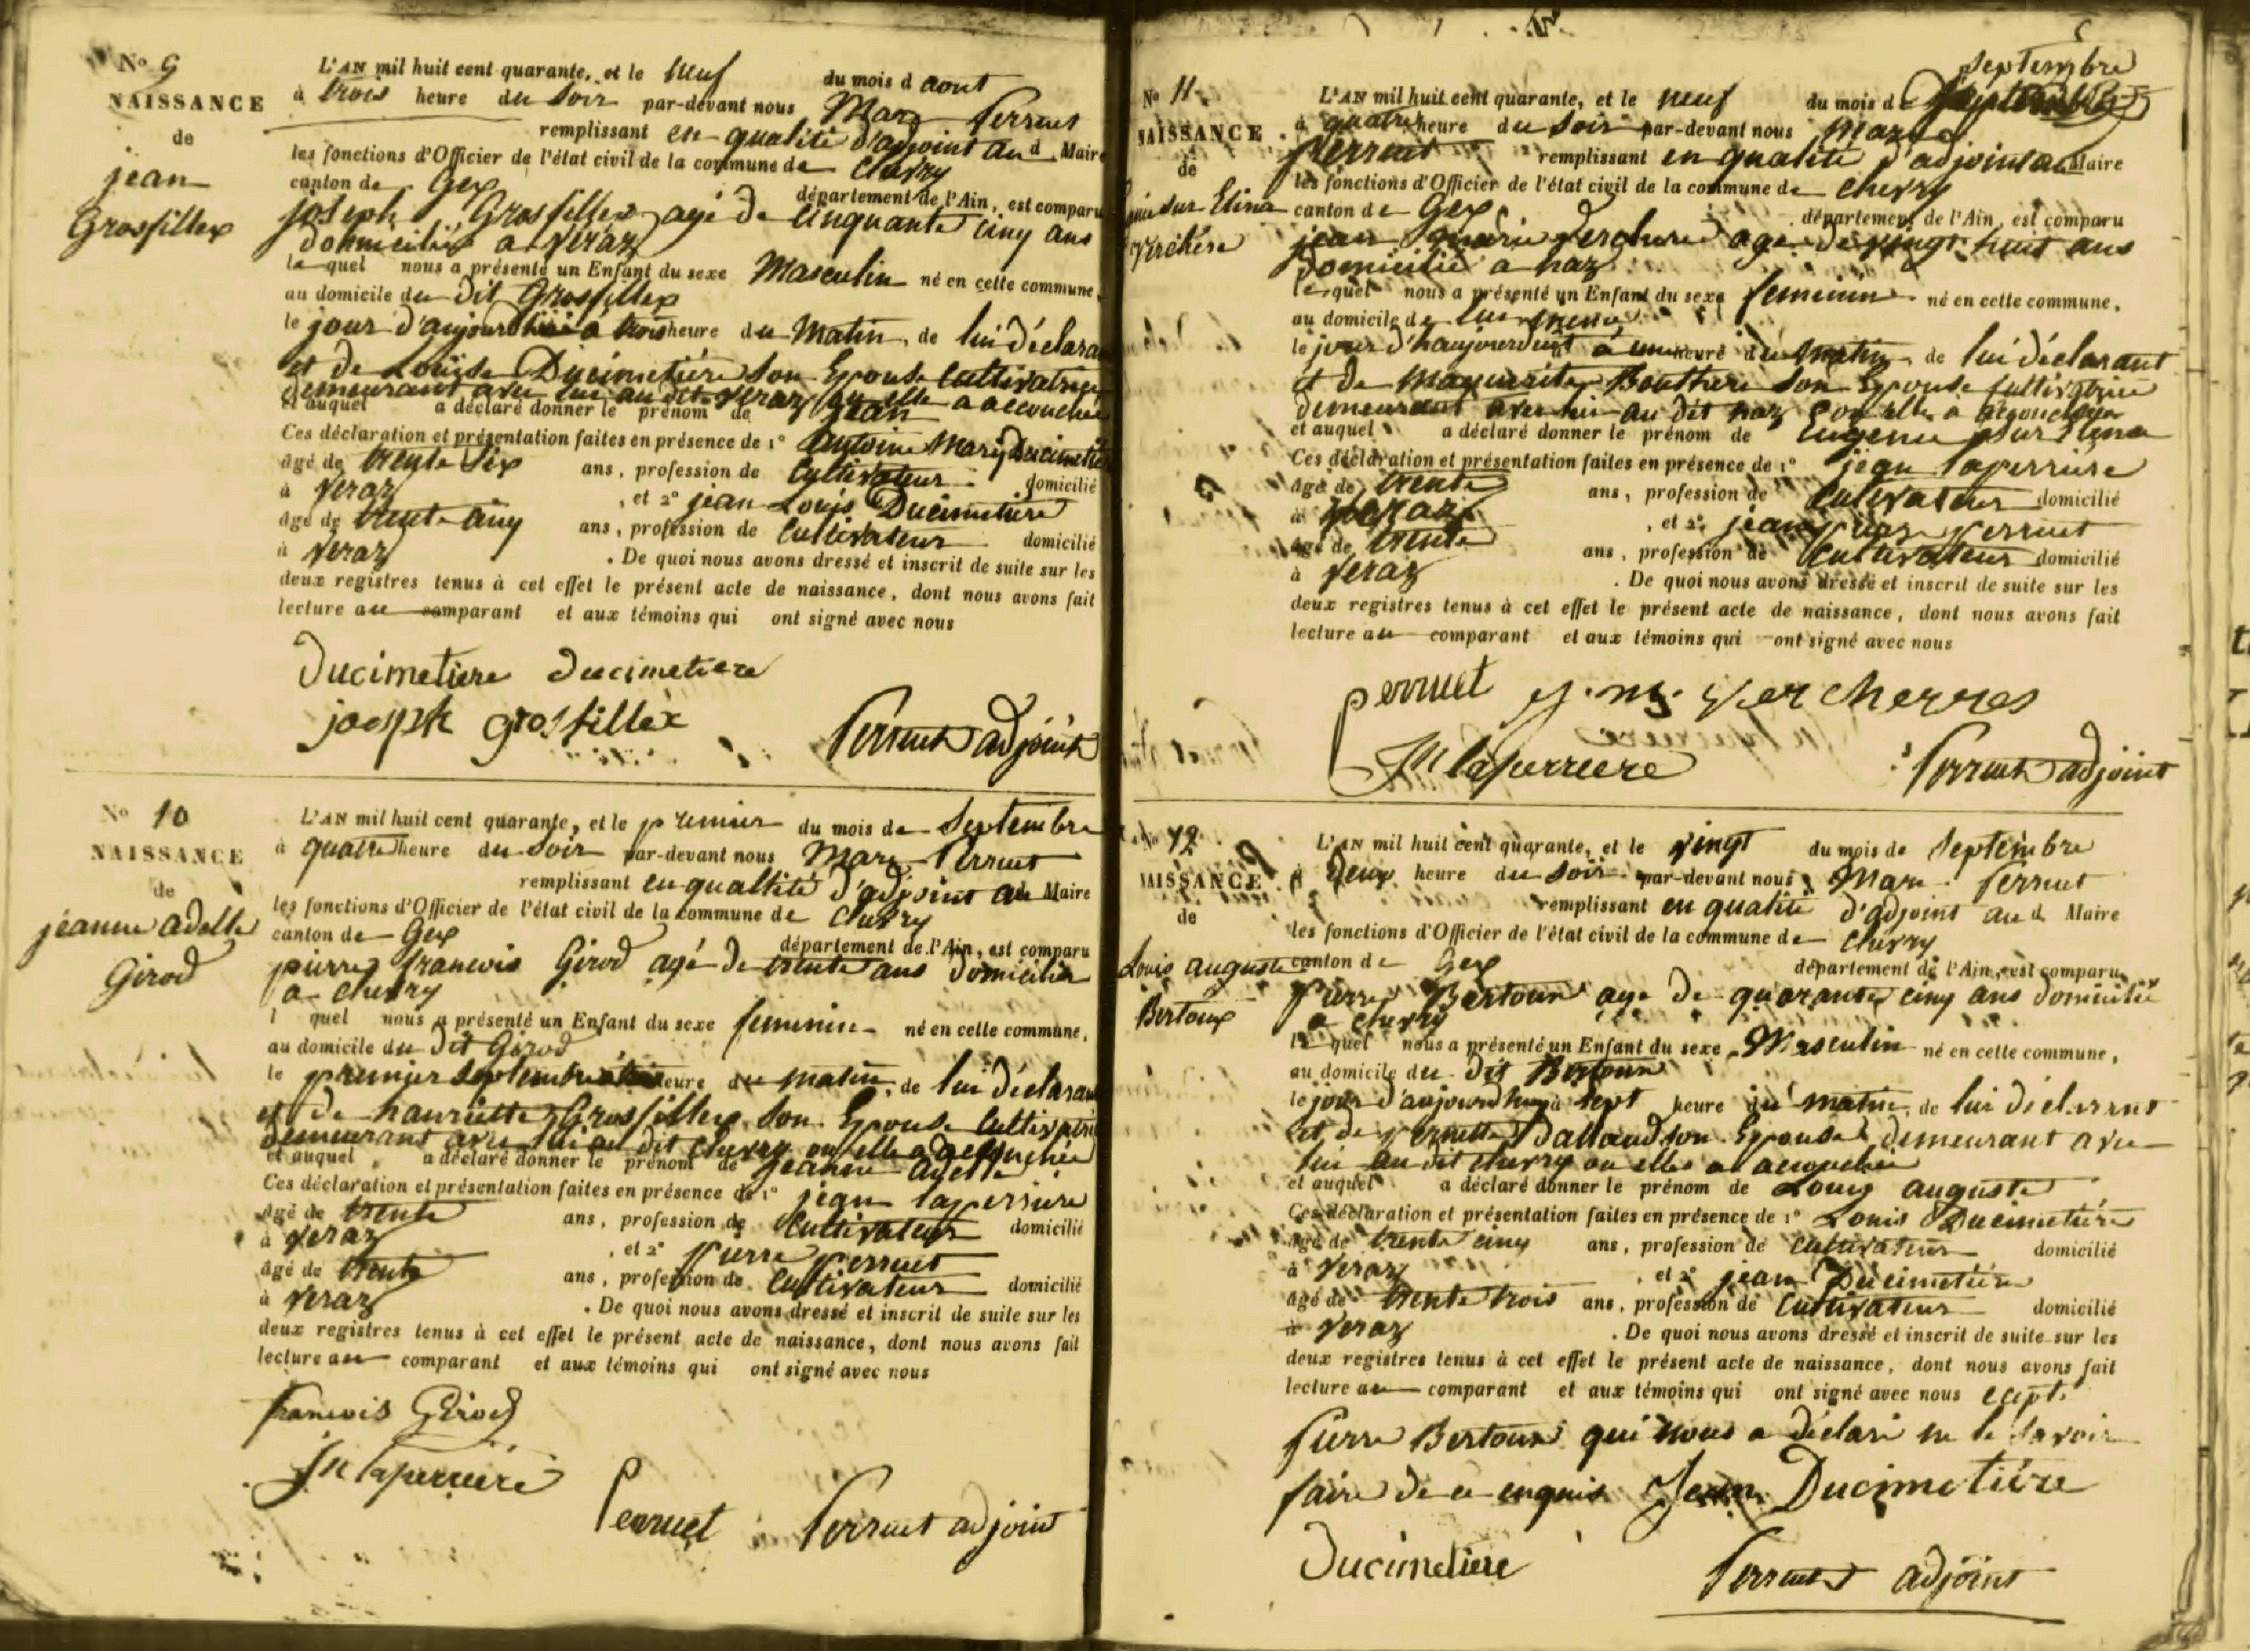 No 9
NAISSANCE
de
jean
Grosfillex
L'AN mil huit cent quarante, et le neuf du mois d aout
à trois heure du soir par-devant nous Marc Perruet
remplissant en qualité d'adjoint au d. Maire
les fonctions d'Officier de l'état civil de la commune de Chevry
canton de Gex département de l'Ain, est comparu
joseph Grosfillex agé de cinquante cinq ans
domicilié a Veraz
lequel nous a présenté un Enfant du sexe Masculin né en cette commune,
au domicile du dit Grosfillex
le jour d'aujourd'hui à trois heure du Matin, de lui déclarant
et de Louise Ducimetière son Epouse cultivatrice
demeurant avec lui au dit Veraz ou elle a accouchée
et auquel a déclaré donner le prénom de jean
Ces déclaration et présentation faites en présence de 1° antoine Mary Ducimetière
âgé de trente six ans, profession de Cultivateur domicilié
à Veraz, et 2° jean Louis Ducimetière
âgé de trente cinq ans, profession de Cultivateur domicilié
à Veraz. De quoi nous avons dressé et inscrit de suite sur les
deux registres tenus à cet effet le présent acte de naissance, dont nous avons fait
lecture au comparant et aux témoins qui ont signé avec nous
Ducimetiere ducimetiere
joesph grosfillex
Perruet adjoint
No 10
NAISSANCE
de
jeanne adelle
Girod
L'AN mil huit cent quarante, et le premier du mois de Septembre
à quatre heure du soir par-devant nous Marc Perruet
remplissant en qualtité d'adjoint au d. Maire
les fonctions d'Officier de l'état civil de la commune de Chevry
canton de Gex département de l'Ain, est comparu
pierre francois Girod agé de trente ans domicilié
a chevry
l quel nous a présenté un Enfant du sexe feminin né en cette commune,
au domicile du dit Girod
le premier septembre à heure du matin, de lui déclarant
et de hanriette Grosfillex son Epouse Cultivatrice
demeurant avec lui au dit chevry ou elle a accouchée
et auquel a déclaré donner le prénom de jeanne adelle
Ces déclaration et présentation faites en présence de 1° jean laperriere
âgé de trente ans, profession de Cultivateur domicilié
à Veraz, et 2° pierre perruet
âgé de trente ans, profession de Cultivateur domicilié
à Veraz. De quoi nous avons dressé et inscrit de suite sur les
deux registres tenus à cet effet le présent acte de naissance, dont nous avons fait
lecture au comparant et aux témoins qui ont signé avec nous
francois Girod
laperriere
Perruet Perruet adjoint
No 11
NAISSANCE
de
sur Elina
Verchère
septembre
L'AN mil huit cent quarante, et le neuf du mois de
à quatre heure du soir par-devant nous Marc
Perruet remplissant en qualité d'adjoint au d. Maire
les fonctions d'Officier de l'état civil de la commune de chevry
canton de Gex département de l'Ain, est comparu
jean marie Verchere agé de vingt huit ans
domicilié a naz
lequel nous a présenté un Enfant du sexe feminin né en cette commune,
au domicile de lui meme
le jour d'haujourdhuit à une heure du matin de lui déclarant
et de Marguerite Bouthere son Epouse cultivatrice
demeurant avec lui au dit naz ou elle a accouchée
et auquel a déclaré donner le prénom de Eugenie sur Elina
Ces déclaration et présentation faites en présence de 1° jean laperriére
âgé de trente ans, profession de Cultivateur domicilié
à Veraz, et 2° jean perruet
âgé de trente ans, profession de Cultivateur domicilié
à Veraz. De quoi nous avons dressé et inscrit de suite sur les
deux registres tenus à cet effet le présent acte de naissance, dont nous avons fait
lecture au comparant et aux témoins qui ont signé avec nous
perruet j. m. Vercherres
laperriere Perruet adjoint
No 12
NAISSANCE
de
Louis auguste
Bertoux
L'AN mil huit cent quarante, et le vingt du mois de Septembre
à deux heure du soir par-devant nous Marc Perruet
remplissant en qualité d'adjoint au d. Maire
les fonctions d'Officier de l'état civil de la commune de Chevry
canton de Gex département de l'Ain, est comparu
Pierre Bertoux agé de quarante cinq ans domicilié
a chevry
lequel nous a présenté un Enfant du sexe Masculin né en cette commune,
au domicile du dit Bertoux
le jour d'aujourdhuy à sept heure du matin, de lui déclarant
et de pernette Dallaud son Epouse demeurant avec
lui au dit chevry ou elle a accouchée
et auquel a déclaré donner le prénom de Louis auguste
Ces déclaration et présentation faites en présence de 1° Louis Ducimetière
âgé de trente cinq ans, profession de cultivateur domicilié
à Veraz, et 2° jean Ducimetière
âgé de trente trois ans, profession de Cultivateur domicilié
à Veraz. De quoi nous avons dressé et inscrit de suite sur les
deux registres tenus à cet effet le présent acte de naissance, dont nous avons fait
lecture au comparant et aux témoins qui ont signé avec nous
Pierre Bertoux qui nous a déclaré ne le savoir
faire de ce enquis Jean Ducimetière
Ducimetiere Perruet adjoint